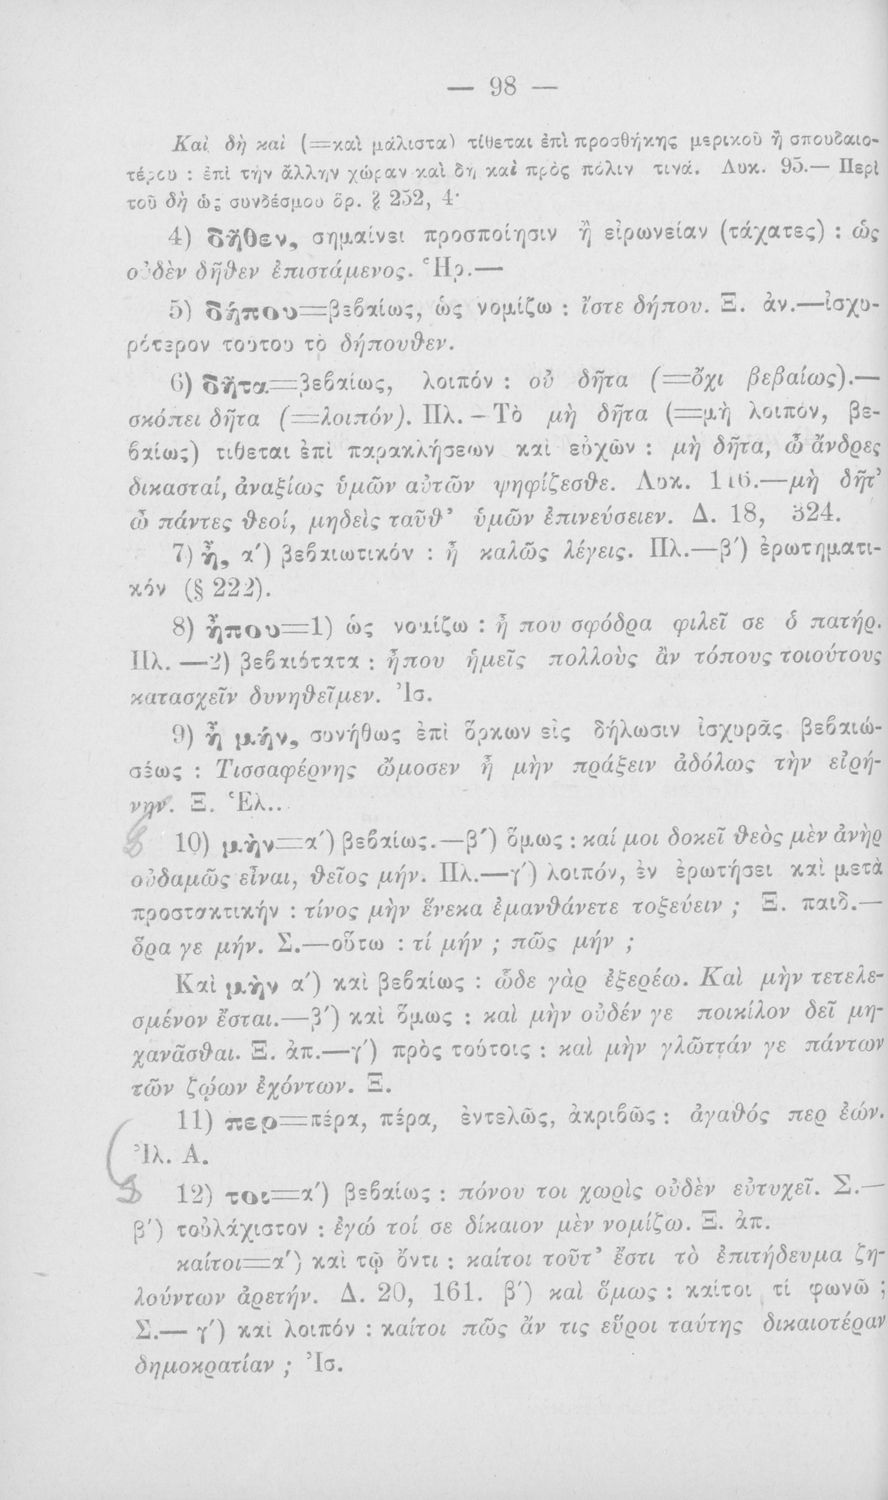 — 98 —
Καὶ δὴ καὶ (=καὶ μάλιστα) τίθεται ἐπὶ προσθήκης μερικοῦ ἢ σπουδαιο-
τέρου : ἐπὶ τὴν ἄλλην χώραν καὶ δὴ καὶ πρὸς πόλιν τινά. Λυκ. 95.— Περὶ
τοῦ δὴ ὡς συνδέσμου ὅρ. § 252, 4·
4) δῆθεν, σημαίνει προσποίησιν ἢ εἰρωνείαν (τάχατες) : ὡς
οὐδὲν δῆθεν ἐπιστάμενος. Ἡρ.—
5) δήπου=βεβαίως, ὡς νομίζω : ἴστε δήπου. Ξ. ἀν.—ἰσχυ-
ρότερον τούτου τὸ δήπουθεν.
6) δῆτα=βεβαίως, λοιπόν : οὐ δῆτα (=ὄχι βεβαίως).—
σκόπει δῆτα (=λοιπόν). Πλ. – Τὸ μὴ δῆτα (=μὴ λοιπόν, βε-
βαίως) τίθεται ἐπὶ παρακλήσεων καὶ εὐχῶν : μὴ δῆτα, ὦ ἄνδρες
δικασταί, ἀναξίως ὑμῶν αὐτῶν ψηφίζεσθε. Λυκ. 116.—μὴ δῆτ’
ὦ πάντες θεοί, μηδεὶς ταῦθ’ ὑμῶν ἐπινεύσειεν. Δ. 18, 324.
7) ἦ, α΄) βεβαιωτικόν : ἦ καλῶς λέγεις. Πλ.—β΄) ἐρωτηματι-
κόν (§ 222).
8) ἦπου=1) ὡς νομίζω : ἦ που σφόδρα φιλεῖ σε ὁ πατήρ.
Πλ. —2) βεβαιότατα : ἦπου ἡμεῖς πολλοὺς ἂν τόπους τοιούτους
κατασχεῖν δυνηθεῖμεν. Ἰσ.
9) ἦ μήν, συνήθως ἐπὶ ὅρκων εἰς δήλωσιν ἰσχυρᾶς βεβαιώ-
σεως : Τισσαφέρνης ὤμοσεν ἦ μὴν πράξειν ἀδόλως τὴν εἰρή-
νην. Ξ. Ἑλ..
10) μὴν=α΄) βεβαίως.—β΄) ὅμως : καί μοι δοκεῖ θεὸς μὲν ἀνὴρ
οὐδαμῶς εἶναι, θεῖος μήν. Πλ.—γ΄) λοιπόν, ἐν ἐρωτήσει καὶ μετὰ
προστακτικήν : τίνος μὴν ἕνεκα ἐμανθάνετε τοξεύειν ; Ξ. παιδ.—
ὅρα γε μήν. Σ.—οὕτω : τί μήν ; πῶς μήν ;
Καὶ μὴν α΄) καὶ βεβαίως : ὧδε γὰρ ἐξερέω. Καὶ μὴν τετελε-
σμένον ἔσται.—β΄) καὶ ὅμως : καὶ μὴν οὐδέν γε ποικίλον δεῖ μη-
χανᾶσθαι. Ξ. ἀπ.—γ΄) πρὸς τούτοις : καὶ μὴν γλῶττάν γε πάντων
τῶν ζῴων ἐχόντων. Ξ.
11) περ=πέρα, πέρα, ἐντελῶς, ἀκριβῶς : ἀγαθός περ ἐών.
Ἰλ. Α.
12) τοι=α΄) βεβαίως : πόνου τοι χωρὶς οὐδὲν εὐτυχεῖ. Σ.—
β΄) τοὐλάχιστον : ἐγώ τοί σε δίκαιον μὲν νομίζω. Ξ. ἀπ.
καίτοι=α΄) καὶ τῷ ὄντι : καίτοι τοῦτ’ ἔστι τὸ ἐπιτήδευμα ζη-
λούντων ἀρετήν. Δ. 20, 161. β΄) καὶ ὅμως : καίτοι τί φωνῶ ;
Σ.— γ΄) καὶ λοιπόν : καίτοι πῶς ἄν τις εὕροι ταύτης δικαιοτέραν
δημοκρατίαν ; Ἰσ.